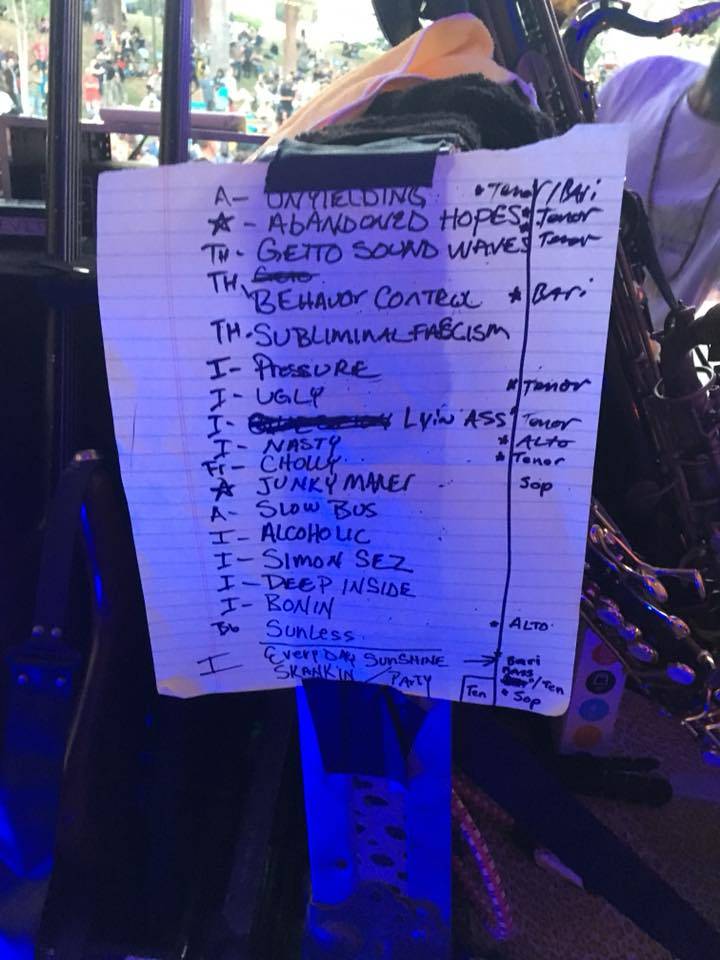 A- UNYIELDING * Tenor/Bari
A - ABANDONED HOPES * Tenor
TH- GETTO SOUND WAVES Tenor
TH
BEHAVOR CONTROL * BARi
TH-SUBLIMINAL FASCISM
I- PRESSURE
I- UGLY * Tenor
I- LYiN ASS Tenor
I- NASTY * ALTO
Fi- CHOLLY * Tenor
A JUNKY MAKER Sop
A- SLOW BUS
I- ALCOHOLIC
I- SIMON SEZ
I-DEEP INSIDE
I- BONIN
Bb SunLess * ALTO
I EVERYDAY SUNSHINE → Bari
BASS
SKANKIN / PATY Ten /Ten
* Sop